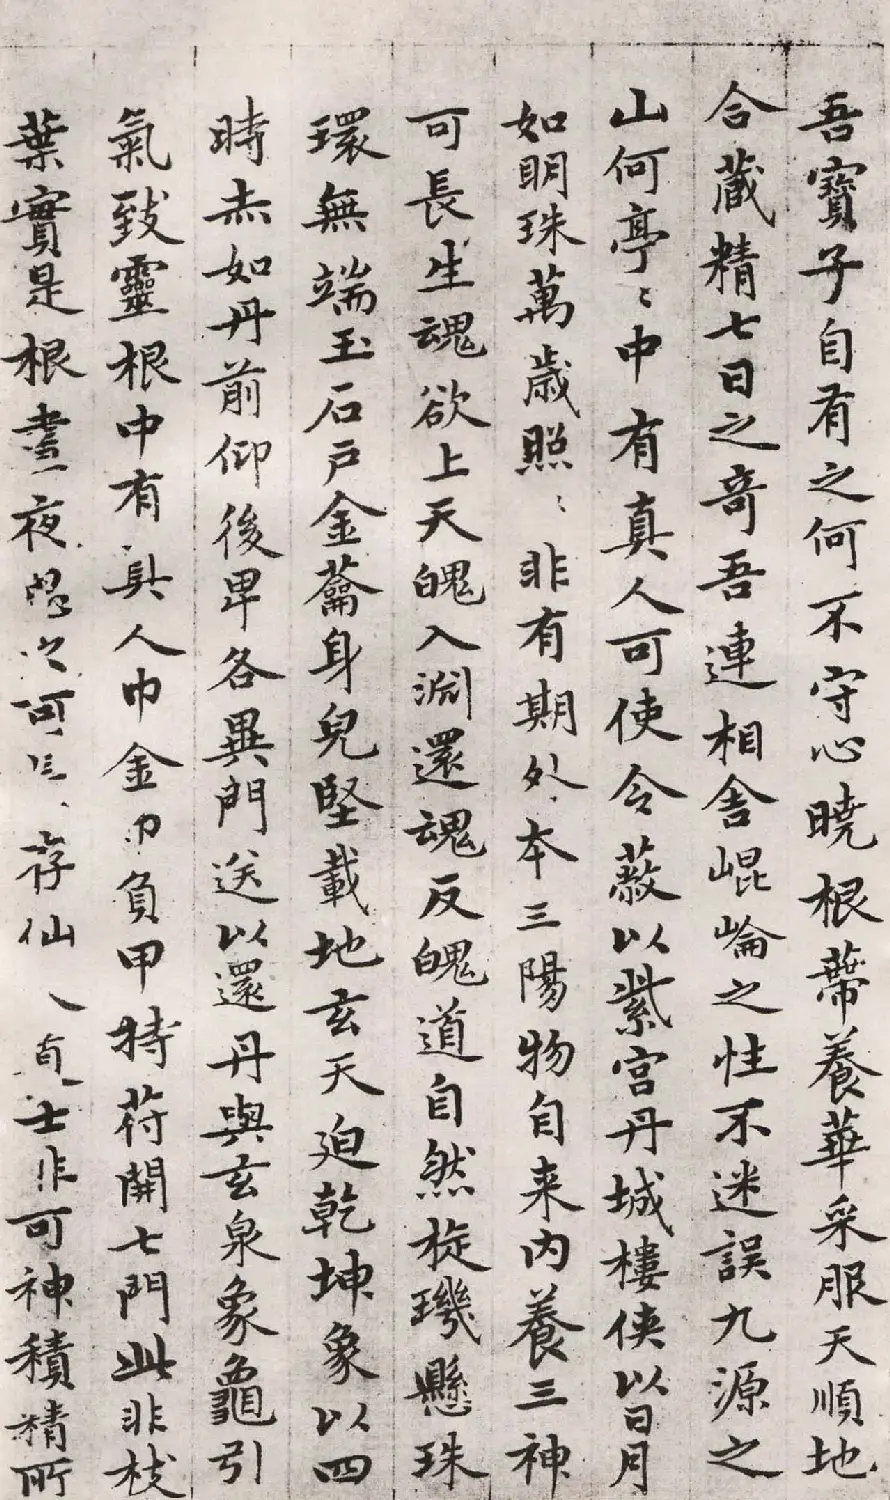 吾寶子自有之何不守心曉根蔕養華采服天順地
合藏精七日之奇吾連相舍崐崘之性不迷誤九源之
山何亭〻中有真人可使令蔽以紫宫丹城樓俠以日月
如明珠萬歲照〻非有期外本三陽物自来内養三神
可長生魂欲上天魄入淵還魂反魄道自然琁璣懸珠
環無端玉石戸金蘥身皃堅載地玄天迫乾坤象以四
時赤如丹前仰後卑各異門送以還丹與玄泉象龜引
氣致靈根中有真人巾金巾負甲持苻開七門此非枝
葉實是根晝夜思之可 存仙人 士非可神積精所